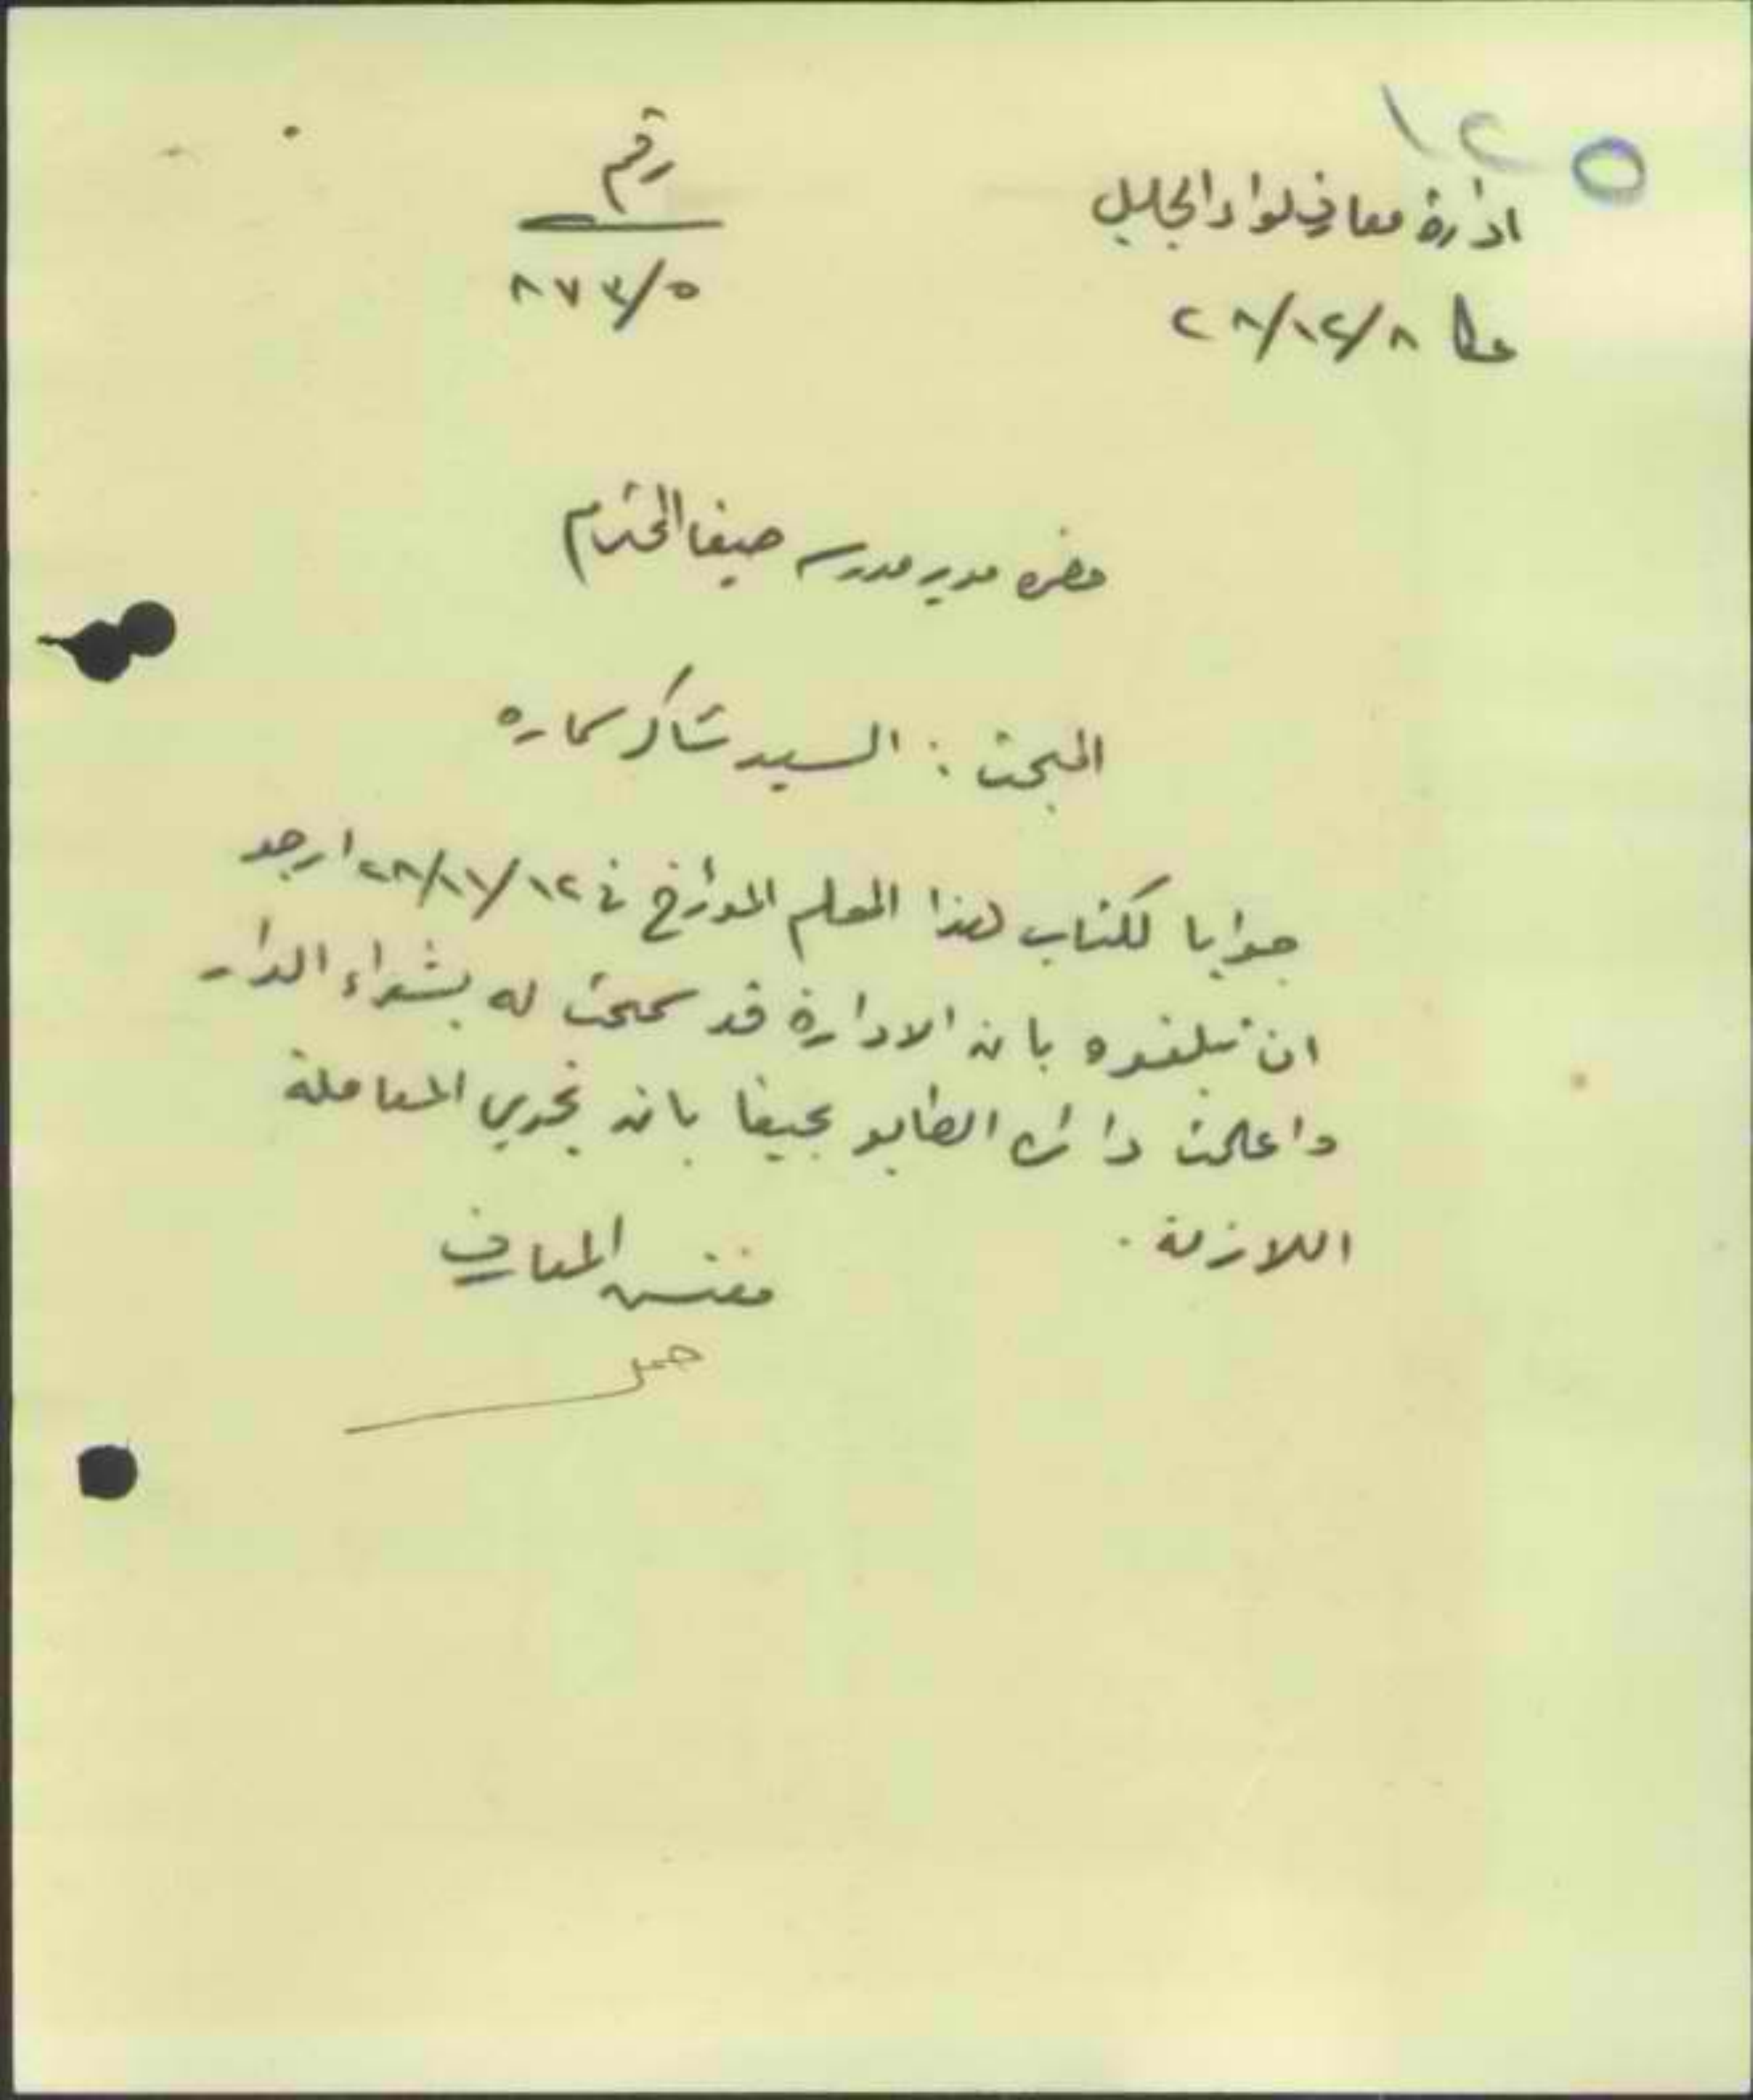 ١٢٥
ادارة معارف لواء الجليل
عكا ٢٨/١٢/٨
رقم
٨٧٣/٥
حضرة مدير مدرسة حيفا المحترم
المبحث : السيد شاكر سماره
جوابا لكتاب هذا المعلم المؤرخ في ٢٨/١١/١٢ ارجو
ان تبلغوه بان الادارة قد سمحت له بشراء الدار
واعلمت دائرة الطابو بحيفا بان تجري المعاملة
اللازمة .
مفتش المعارف